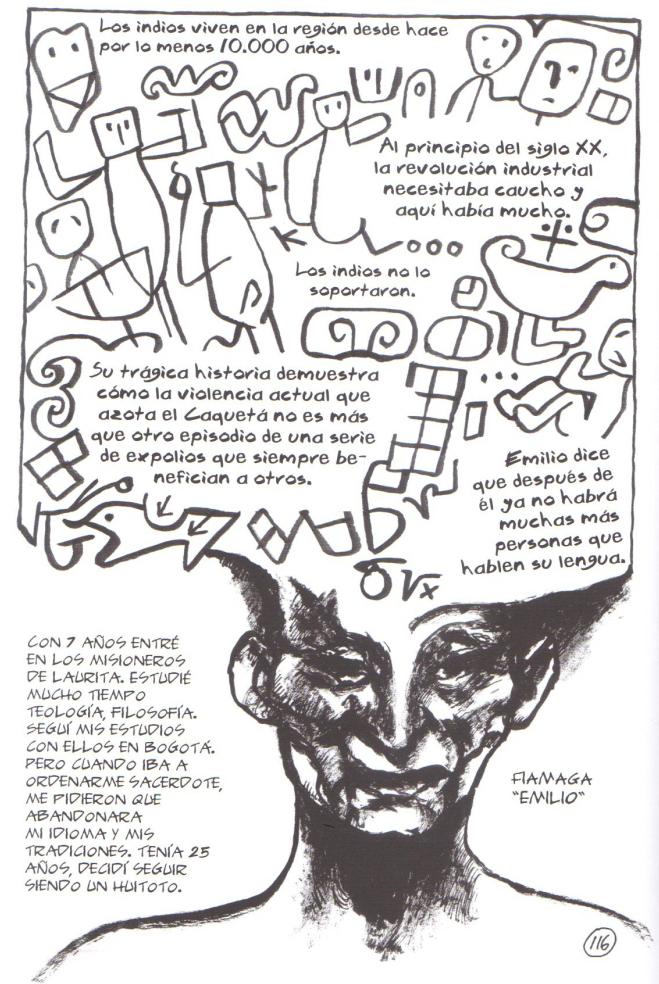 Los indios viven en la región desde hace
por lo menos 10.000 años.
Al principio del siglo XX,
la revolución industrial
necesitaba caucho y
aquí había mucho.
Los indios no lo
soportaron.
Su trágica historia demuestra
cómo la violencia actual que
azota el Caquetá no es más
que otro episodio de una serie
de expolios que siempre be-
nefician a otros.
Emilio dice
que después de
él ya no habrá
muchas más
personas que
hablen su lengua.
CON 7 AÑOS ENTRÉ
EN LOS MISIONEROS
DE LAURITA. ESTUDIÉ
MUCHO TIEMPO
TEOLOGÍA, FILOSOFÍA.
SEGUÍ MIS ESTUDIOS
CON ELLOS EN BOGOTÁ.
PERO CUANDO IBA A
ORDENARME SACERDOTE,
ME PIDIERON QUE
ABANDONARA
MI IDIOMA Y MIS
TRADICIONES. TENÍA 25
AÑOS, DECIDÍ SEGUIR
SIENDO UN HUITOTO.
FIAMAGA
"EMILIO"
116